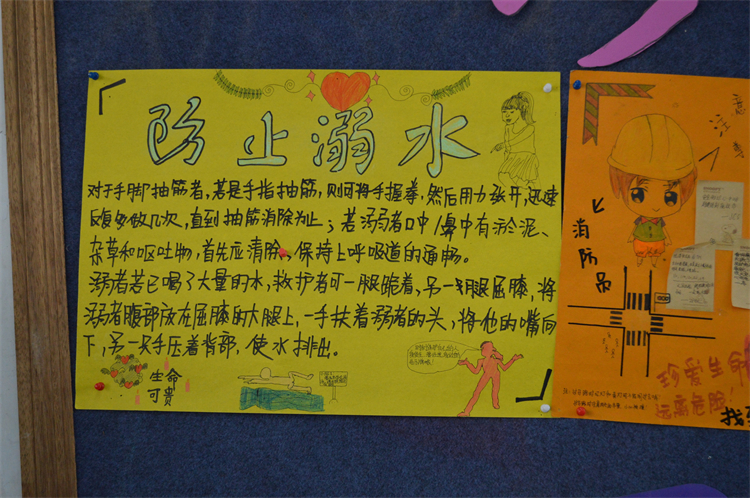 防止溺水
对于手脚抽筋者,若是手指抽筋,则可将手握拳,然后用力张开,迅速
反复多做几次,直到抽筋消除为止;若溺弱者口中/鼻中有淤泥、
杂草和呕吐物,首先应清除,保持上呼吸道的通畅。
溺者若已喝了大量的水,救护者可一腿跪着,另一只腿屈膝,将
溺者腹部放在屈膝的大腿上,一手扶着溺者的头,将他的嘴向
下,另一只手压着背部,使水排出。
生命
可贵
注
意
消
防
员
珍爱生命
远离危险!